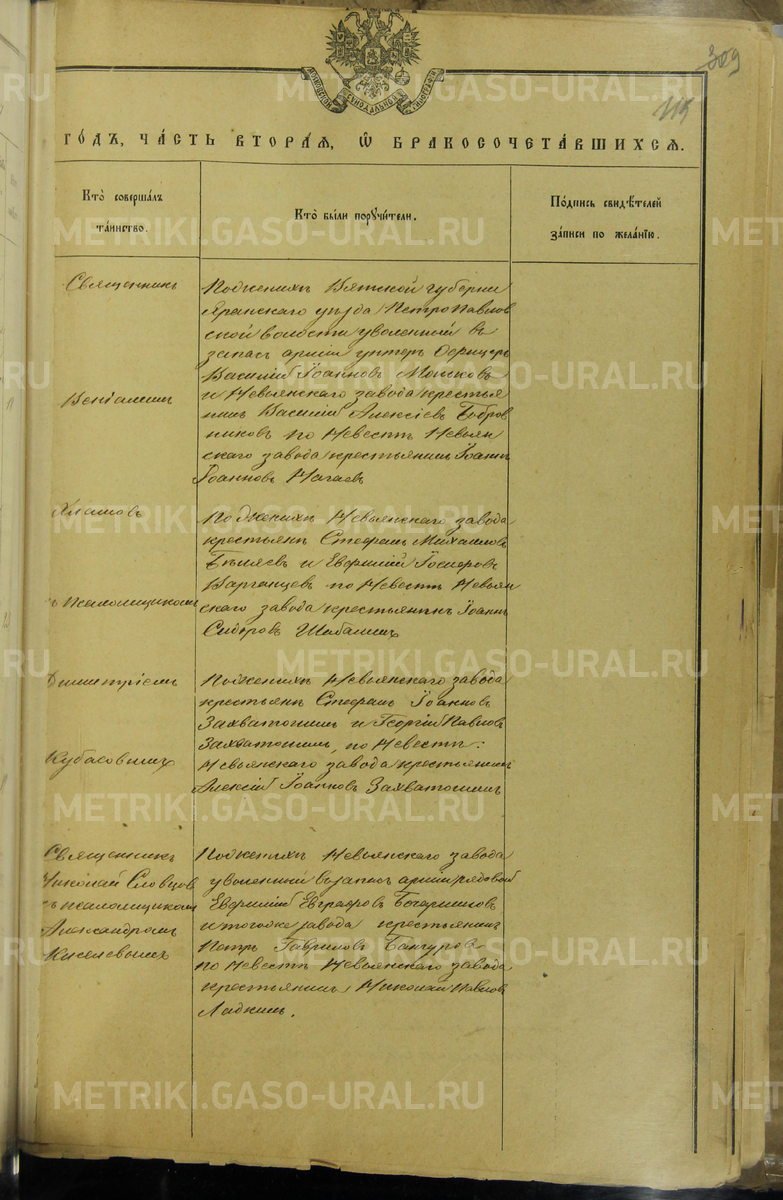 309
115
МОСКОВСКОЙ СУНОДАЛЬНОЙ ТИПОГРАФІИ
ГОДЪ, ЧАСТЬ ВТОРАЯ, Ѡ БРАКОСОЧЕТАВШИХСЯ.
Кто совершалъ
таинство.
Кто были поручители.
Подпись свидѣтелей
записи по желанію.
Священникъ
Веніаминъ
Хламовъ
съ псаломщикомъ
Димитріемъ
Кубасовымъ
По женихѣ Вятской губерніи
Яранскаго уѣзда Петропавлов
ской волости уволенный въ
запасъ арміи унтеръ Офицеръ
Василій Іоанновъ
и Невьянскаго завода крестья
нинъ Василій Алексіевъ Бобров
никовъ по Невестѣ Невьян
скаго завода крестьянинъ Іоаннъ
Іоанновъ Нагаевъ
По Женихѣ Невьянскаго завода
крестьяне Стефанъ Михайловъ
Бѣляевъ и Евфимій Іосифовъ
Варганцевъ по Невестѣ Невьян
скаго завода крестьянинъ Іоаннъ
Сидоровъ Шабалинъ
По женихѣ Невьянскаго завода
крестьяне Стефанъ Іоанновъ
Захватошинъ и Георгій Павловъ
Захватошинъ, по Невестѣ:
Невьянскаго завода крестьянинъ
Алексій Іоанновъ Захватошинъ
Священникъ
Николай Словцовъ
съ псаломщикомъ
Александромъ
Киселевымъ
По женихѣ Невьянскаго завода
уволенный въ запасъ арміи рядовой
Евфимій Евграфовъ
и тогоже завода крестьянинъ
Петръ Гавриловъ
по Невестѣ Невьянскаго завода
крестьянинъ Николай Павловъ
Ладкинъ.
METRIKI.GASO-URAL.RU